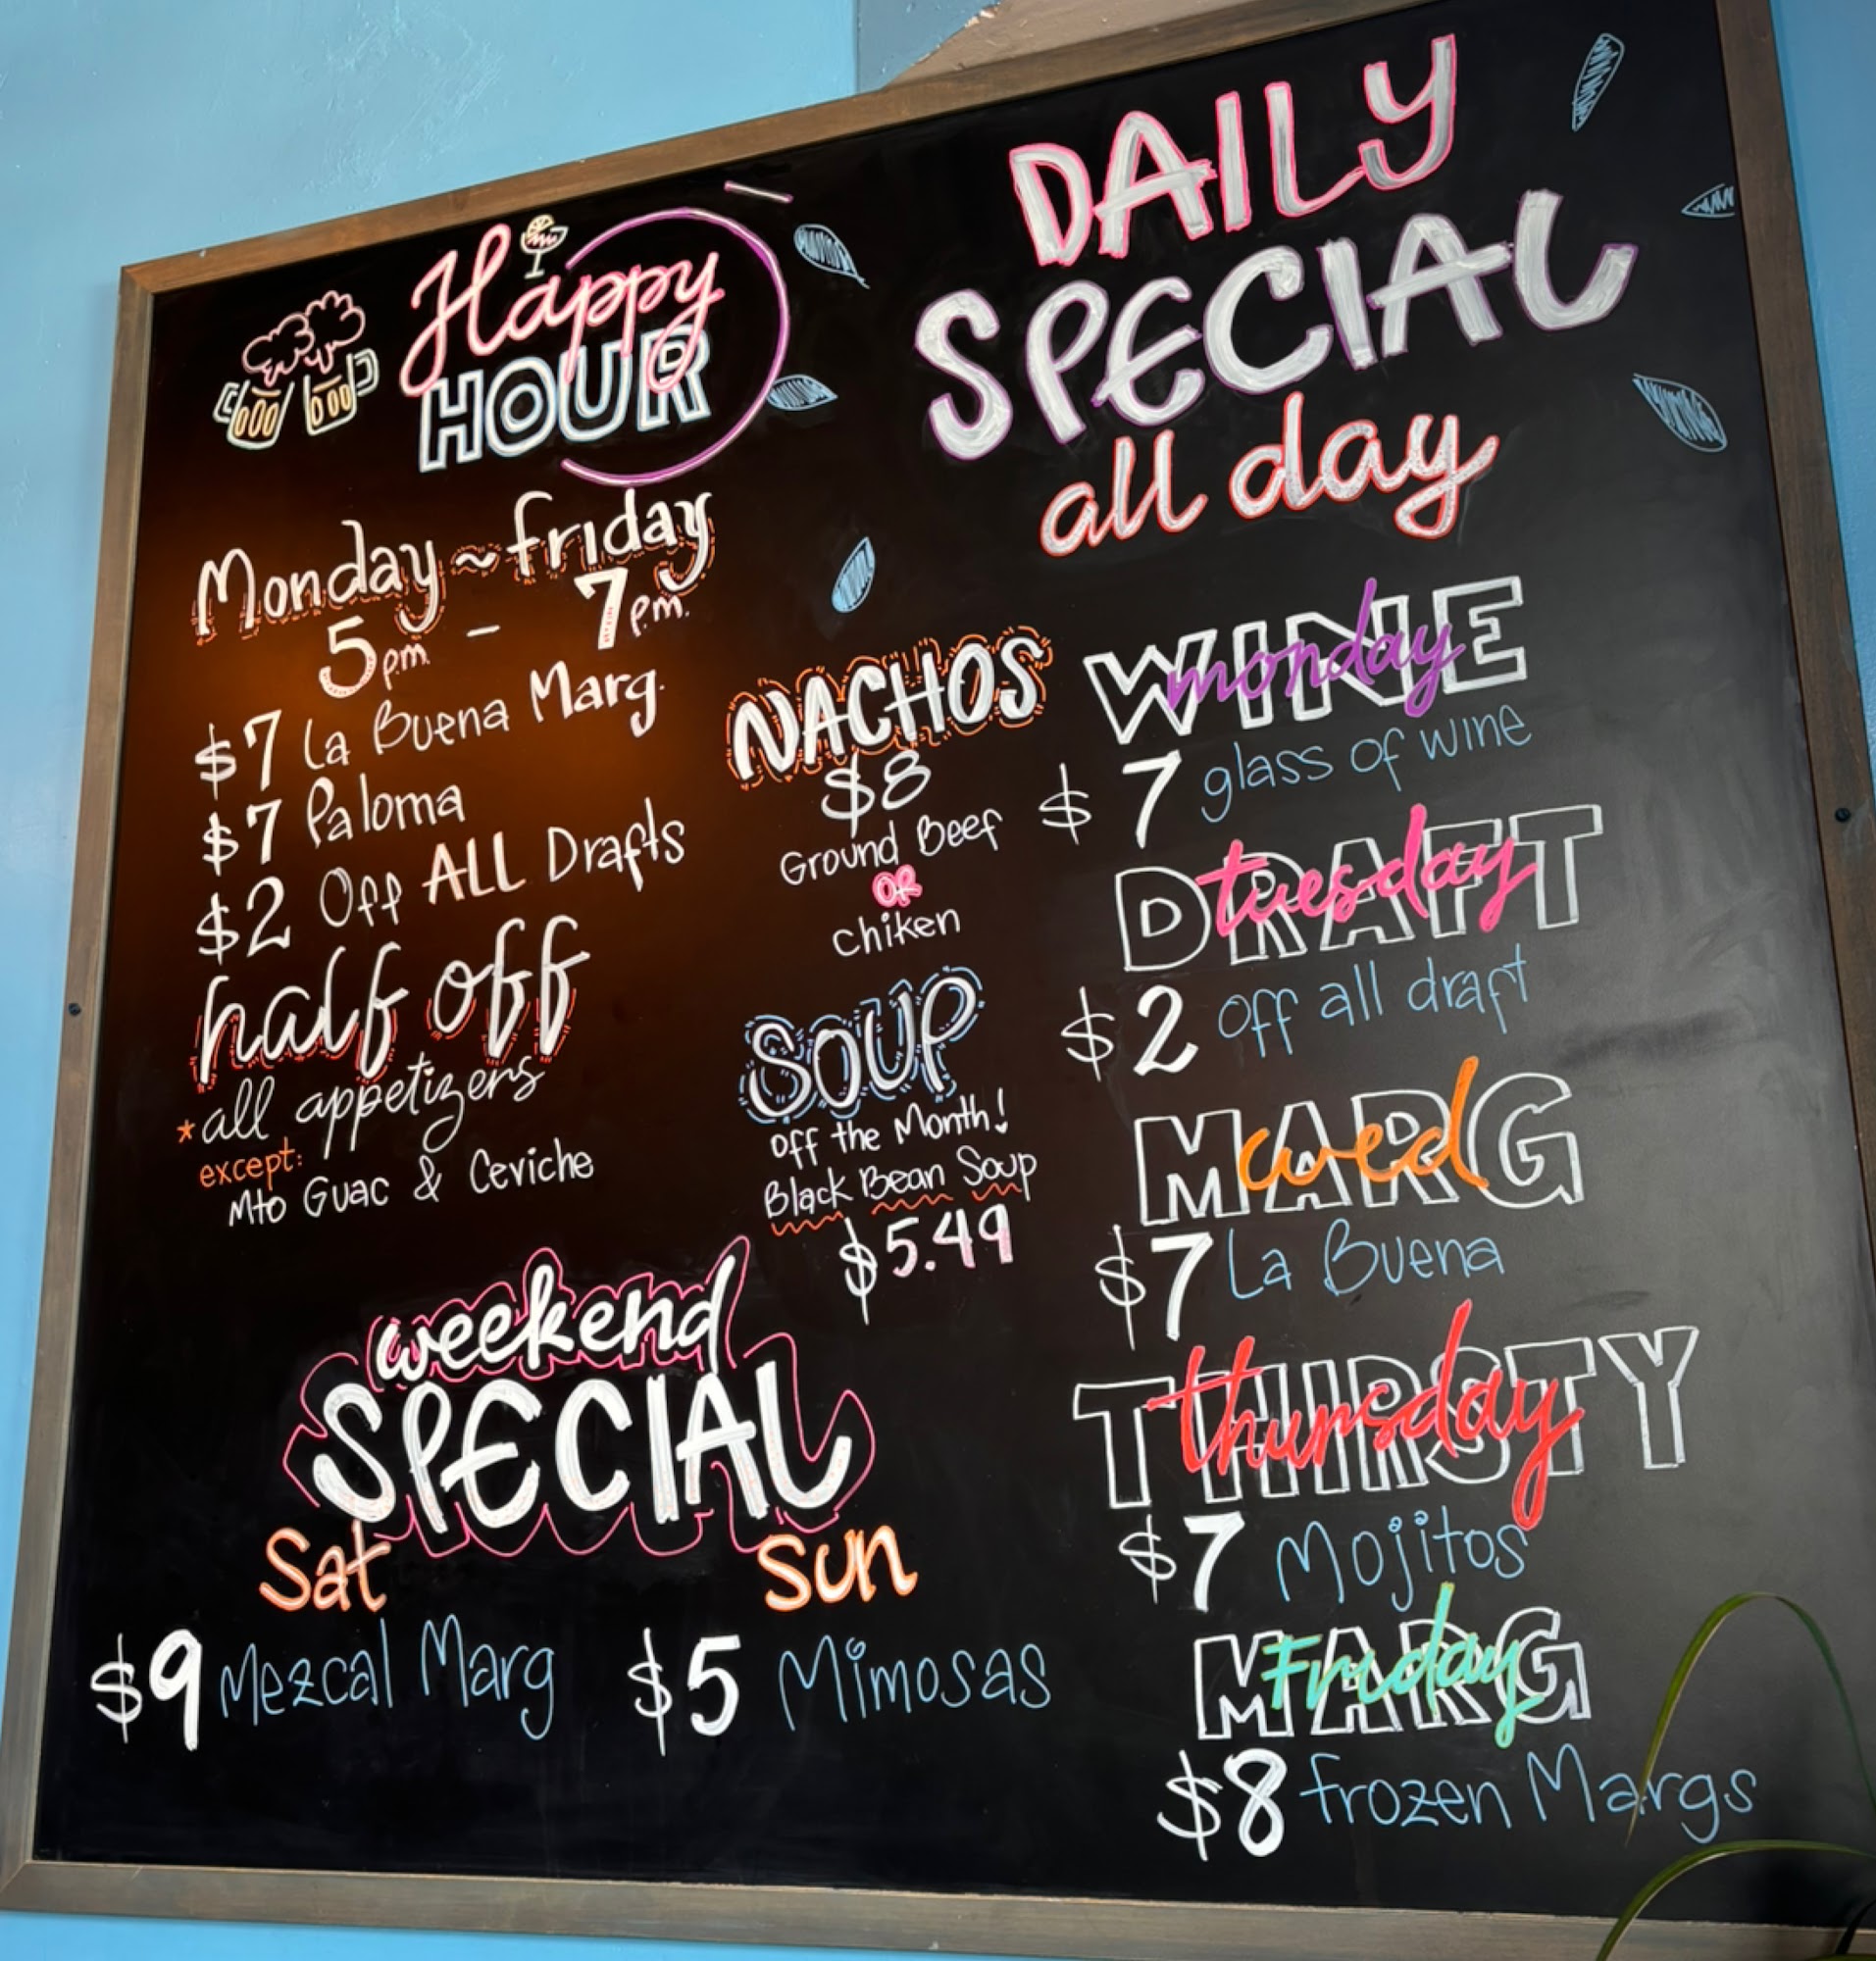 Happy
HOUR
Monday ~ friday
5 p.m. - 7 p.m.
$7 La Buena Marg.
$7 Paloma
$2 Off ALL Drafts
half off
*all appetizers
except:
Mto Guac & Ceviche
NACHOS
$8
Ground Beef
OR
chiken
SOUP
Off the Month!
Black Bean Soup
$5.49
weekend
SPECIAL
Sat
$9 Mezcal Marg
Sun
$5 Mimosas
DAILY
SPECIAL
all day
WINE
monday
$7 glass of wine
DRAFT
tuesday
$2 off all draft
MARG
wed
$7 La Buena
THIRSTY
thursday
$7 Mojitos
MARG
Friday
$8 frozen Margs